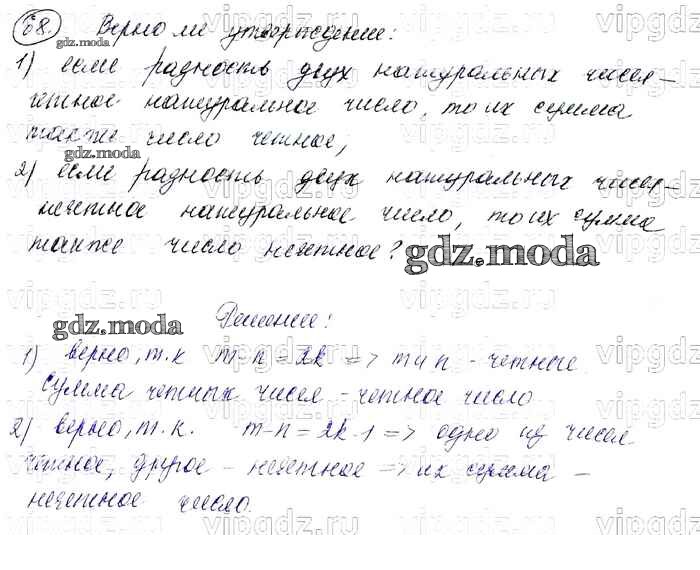 68. Верно ли утверждение:
gdz.moda
1) если разность двух натуральных чисел –
четное натуральное число, то их сумма
также число четное;
gdz.moda
2) если разность двух натуральных чисел –
нечетное натуральное число, то их сумма
также число нечетное?
gdz.moda
Решение:
gdz.moda
1) верно, т.к m-n=2k => m и n - четные
сумма четных чисел - четное число
2) верно, т.к. m-n=2k-1 => одно из чисел
четное, другое - нечетное => их сумма -
нечетное число.
vipgdz.ru